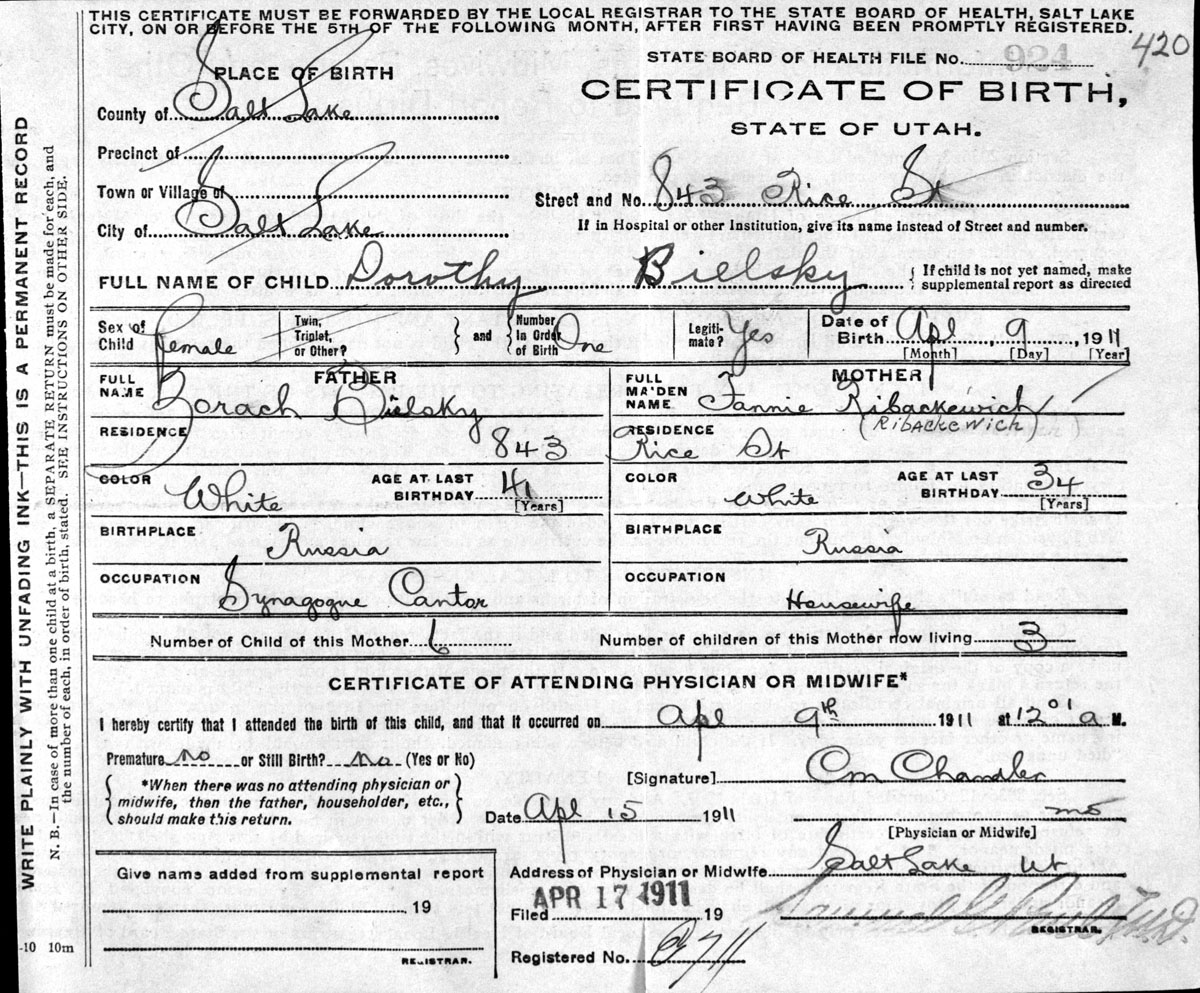 THIS CERTIFICATE MUST BE FORWARDED BY THE LOCAL REGISTRAR TO THE STATE BOARD OF HEALTH, SALT LAKE
CITY, ON OR BEFORE THE 5TH OF THE FOLLOWING MONTH, AFTER FIRST HAVING BEEN PROMPTLY REGISTERED.
420
PLACE OF BIRTH
STATE BOARD OF HEALTH FILE No. 924
County of Salt Lake
CERTIFICATE OF BIRTH,
STATE OF UTAH.
Precinct of
Town or Village of
Street and No. 843 Rice St
City of Salt Lake
If in Hospital or other Institution, give its name instead of Street and number.
FULL NAME OF CHILD Dorothy Bielsky
{ If child is not yet named, make
supplemental report as directed
Sex of Child Female
Twin, Triplet, or Other?
and
Number In Order of Birth One
Legiti-mate? Yes
Date of Birth Apl 9, 1911
[Month] [Day] [Year]
FATHER
FULL NAME Borach Bielsky
MOTHER
FULL MAIDEN NAME Fannie Ribackewich
(RibackeWich)
RESIDENCE 843
RESIDENCE Rice St
COLOR White
AGE AT LAST BIRTHDAY 41
[Years]
COLOR White
AGE AT LAST BIRTHDAY 34
[Years]
BIRTHPLACE Russia
BIRTHPLACE Russia
OCCUPATION Synagogue Cantor
OCCUPATION Housewife
Number of Child of this Mother 6
Number of children of this Mother now living 3
CERTIFICATE OF ATTENDING PHYSICIAN OR MIDWIFE*
I hereby certify that I attended the birth of this child, and that it occurred on Apl 9th 1911 at 12 01 a M.
Premature No or Still Birth? No (Yes or No)
*When there was no attending physician or
midwife, then the father, householder, etc.,
should make this return.
[Signature] Cm Chandler
Date Apl 15 1911
MD
[Physician or Midwife]
Address of Physician or Midwife Salt Lake Ut
Give name added from supplemental report
19
REGISTRAR.
APR 17 1911
Filed 19
REGISTRAR.
Registered No.
-10 10m
WRITE PLAINLY WITH UNFADING INK—THIS IS A PERMANENT RECORD
N. B.—In case of more than one child at a birth, a SEPARATE RETURN must be made for each, and
the number of each, in order of birth, stated. SEE INSTRUCTIONS ON OTHER SIDE.